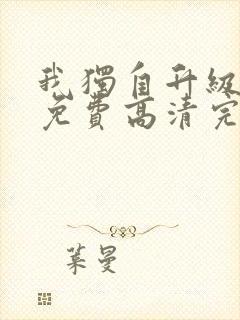 我獨自升級
免費高清完
葉曼